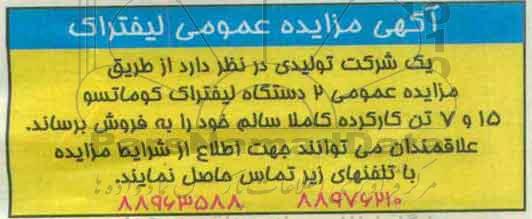 آگهی مزایده عمومی لیفتراک
یک شرکت تولیدی در نظر دارد از طریق
مزایده عمومی ۲ دستگاه لیفتراک کوماتسو
۱۵ و ۷ تن کارکرده کاملا سالم خود را به فروش برساند.
علاقمندان می توانند جهت اطلاع از شرایط مزایده
با تلفنهای زیر تماس حاصل نمایند.
۸۸۹۶۳۵۸۸ ۸۸۹۷۶۲۱۰